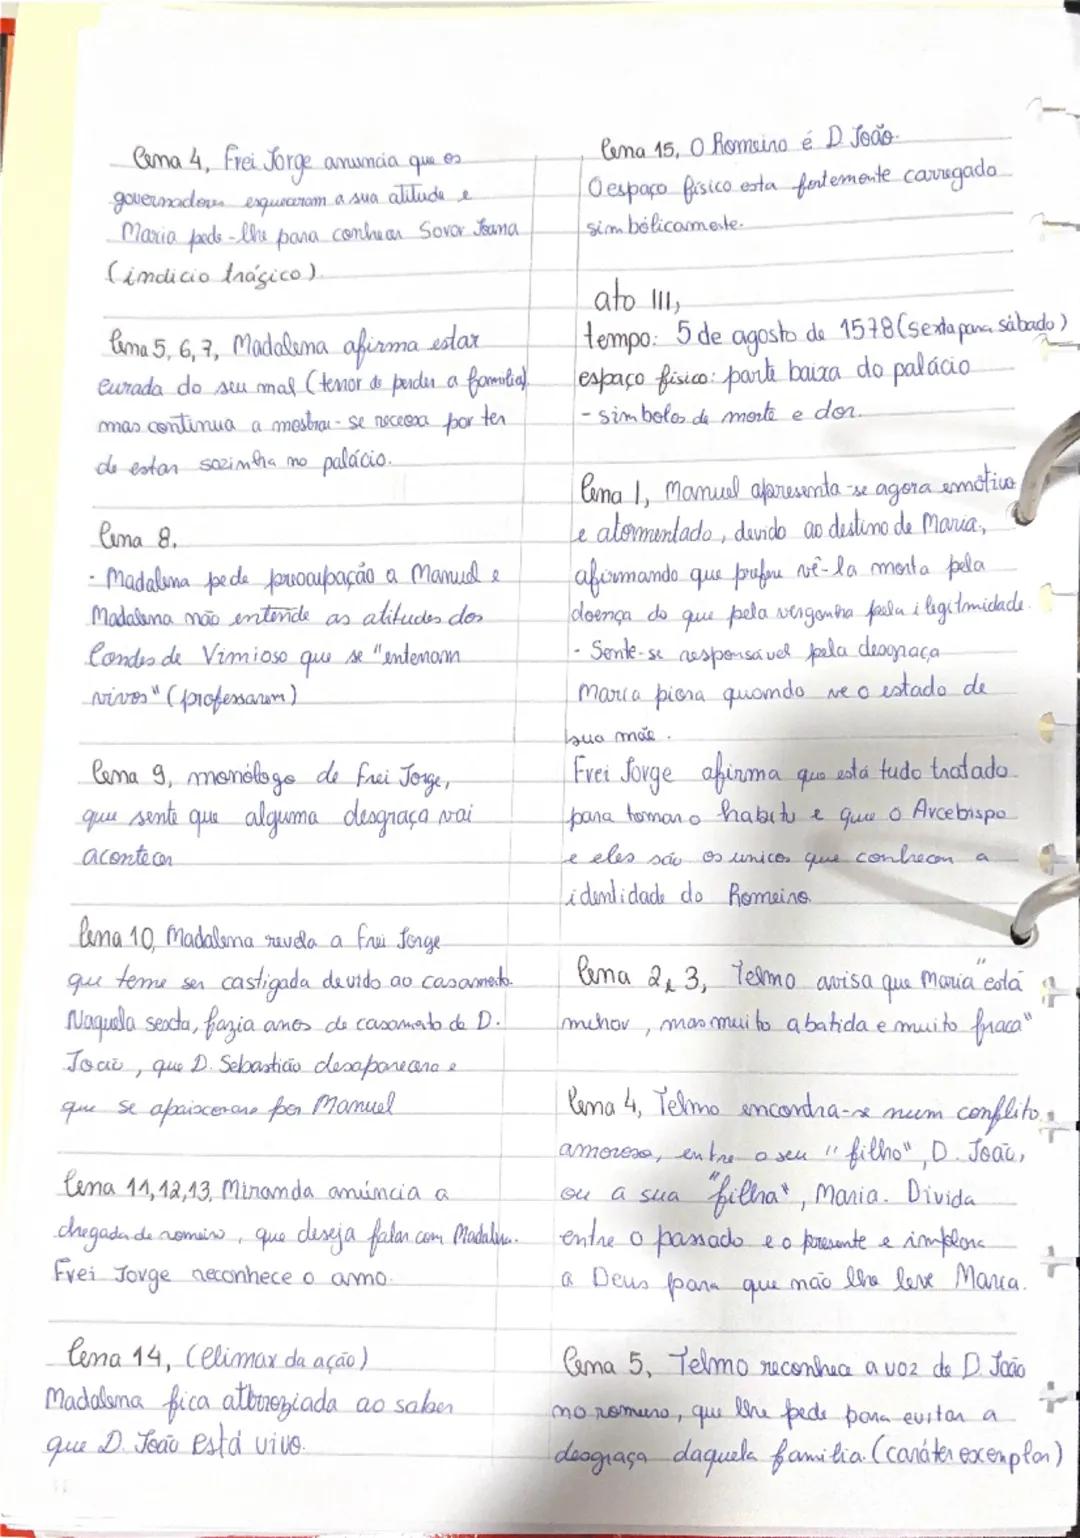 Cena 4, Frei Jorge anuncia que os
governadores esqueceram a sua atitude e
Maria pede-lhe para conhecer Soror Joana
(indicio trágico).
Cena 5, 6, 7, Madalena afirma estar
curada do seu mal (terror de perder a familia)
mas continua a mostrar-se receosa por ter
de estar sozinha no palácio.
Cena 8,
- Madalena pede preocupação a Manuel e
Madalena não entende as atitudes dos
Condes de Vimioso que se "enterram
vivos" (professaram)
Cena 9, monólogo de Frei Jorge,
que sente que alguma desgraça vai
acontecer
Cena 10, Madalena revela a Frei Jorge
que teme ser castigada devido ao casamento.
Naquela sexta, fazia anos de casamento de D.
João, que D. Sebastião desaparecera e
que se apaixonara por Manuel
Cena 11, 12, 13, Miranda anúncia a
chegada de romeiro, que deseja falar com Madalena.
Frei Jorge reconhece o amo.
Cena 14, (Climax da ação)
Madalena fica aterrorizada ao saber
que D. João está vivo.
Cena 15, O Romeiro é D. João.
O espaço físico esta fortemente carregado
simbólicamente.
ato III,
tempo: 5 de agosto de 1578 (sexta para sábado)
espaço físico: parte baixa do palácio
- simbolos de morte e dor.
Cena 1, Manuel apresenta-se agora emótivo
e atormentado, devido ao destino de Maria,
afirmando que prefere vê-la morta pela
doença do que pela vergonha pela ilegitmidade.
- Sente-se responsável pela desgraça
Maria piora quando ve o estado de
sua mãe.
Frei Jorge afirma que está tudo tratado
para tomar o habitu e que o Arcebispo
e eles são os unicos que conhecem a
identidade do Romeiro.
Cena 2, 3, Telmo avisa que Maria "está
melhor, mas muito abatida e muito fraca"
Cena 4, Telmo encontra-se num conflito
amoroso, entre o seu "filho", D. João,
ou a sua "filha", Maria. Divida
entre o passado e o presente e implora
a Deus para que não lhe leve Maria.
Cena 5, Telmo reconhece a voz de D. João
no romeiro, que lhe pede para evitar a
desgraça daquela familia. (caráter exemplar)